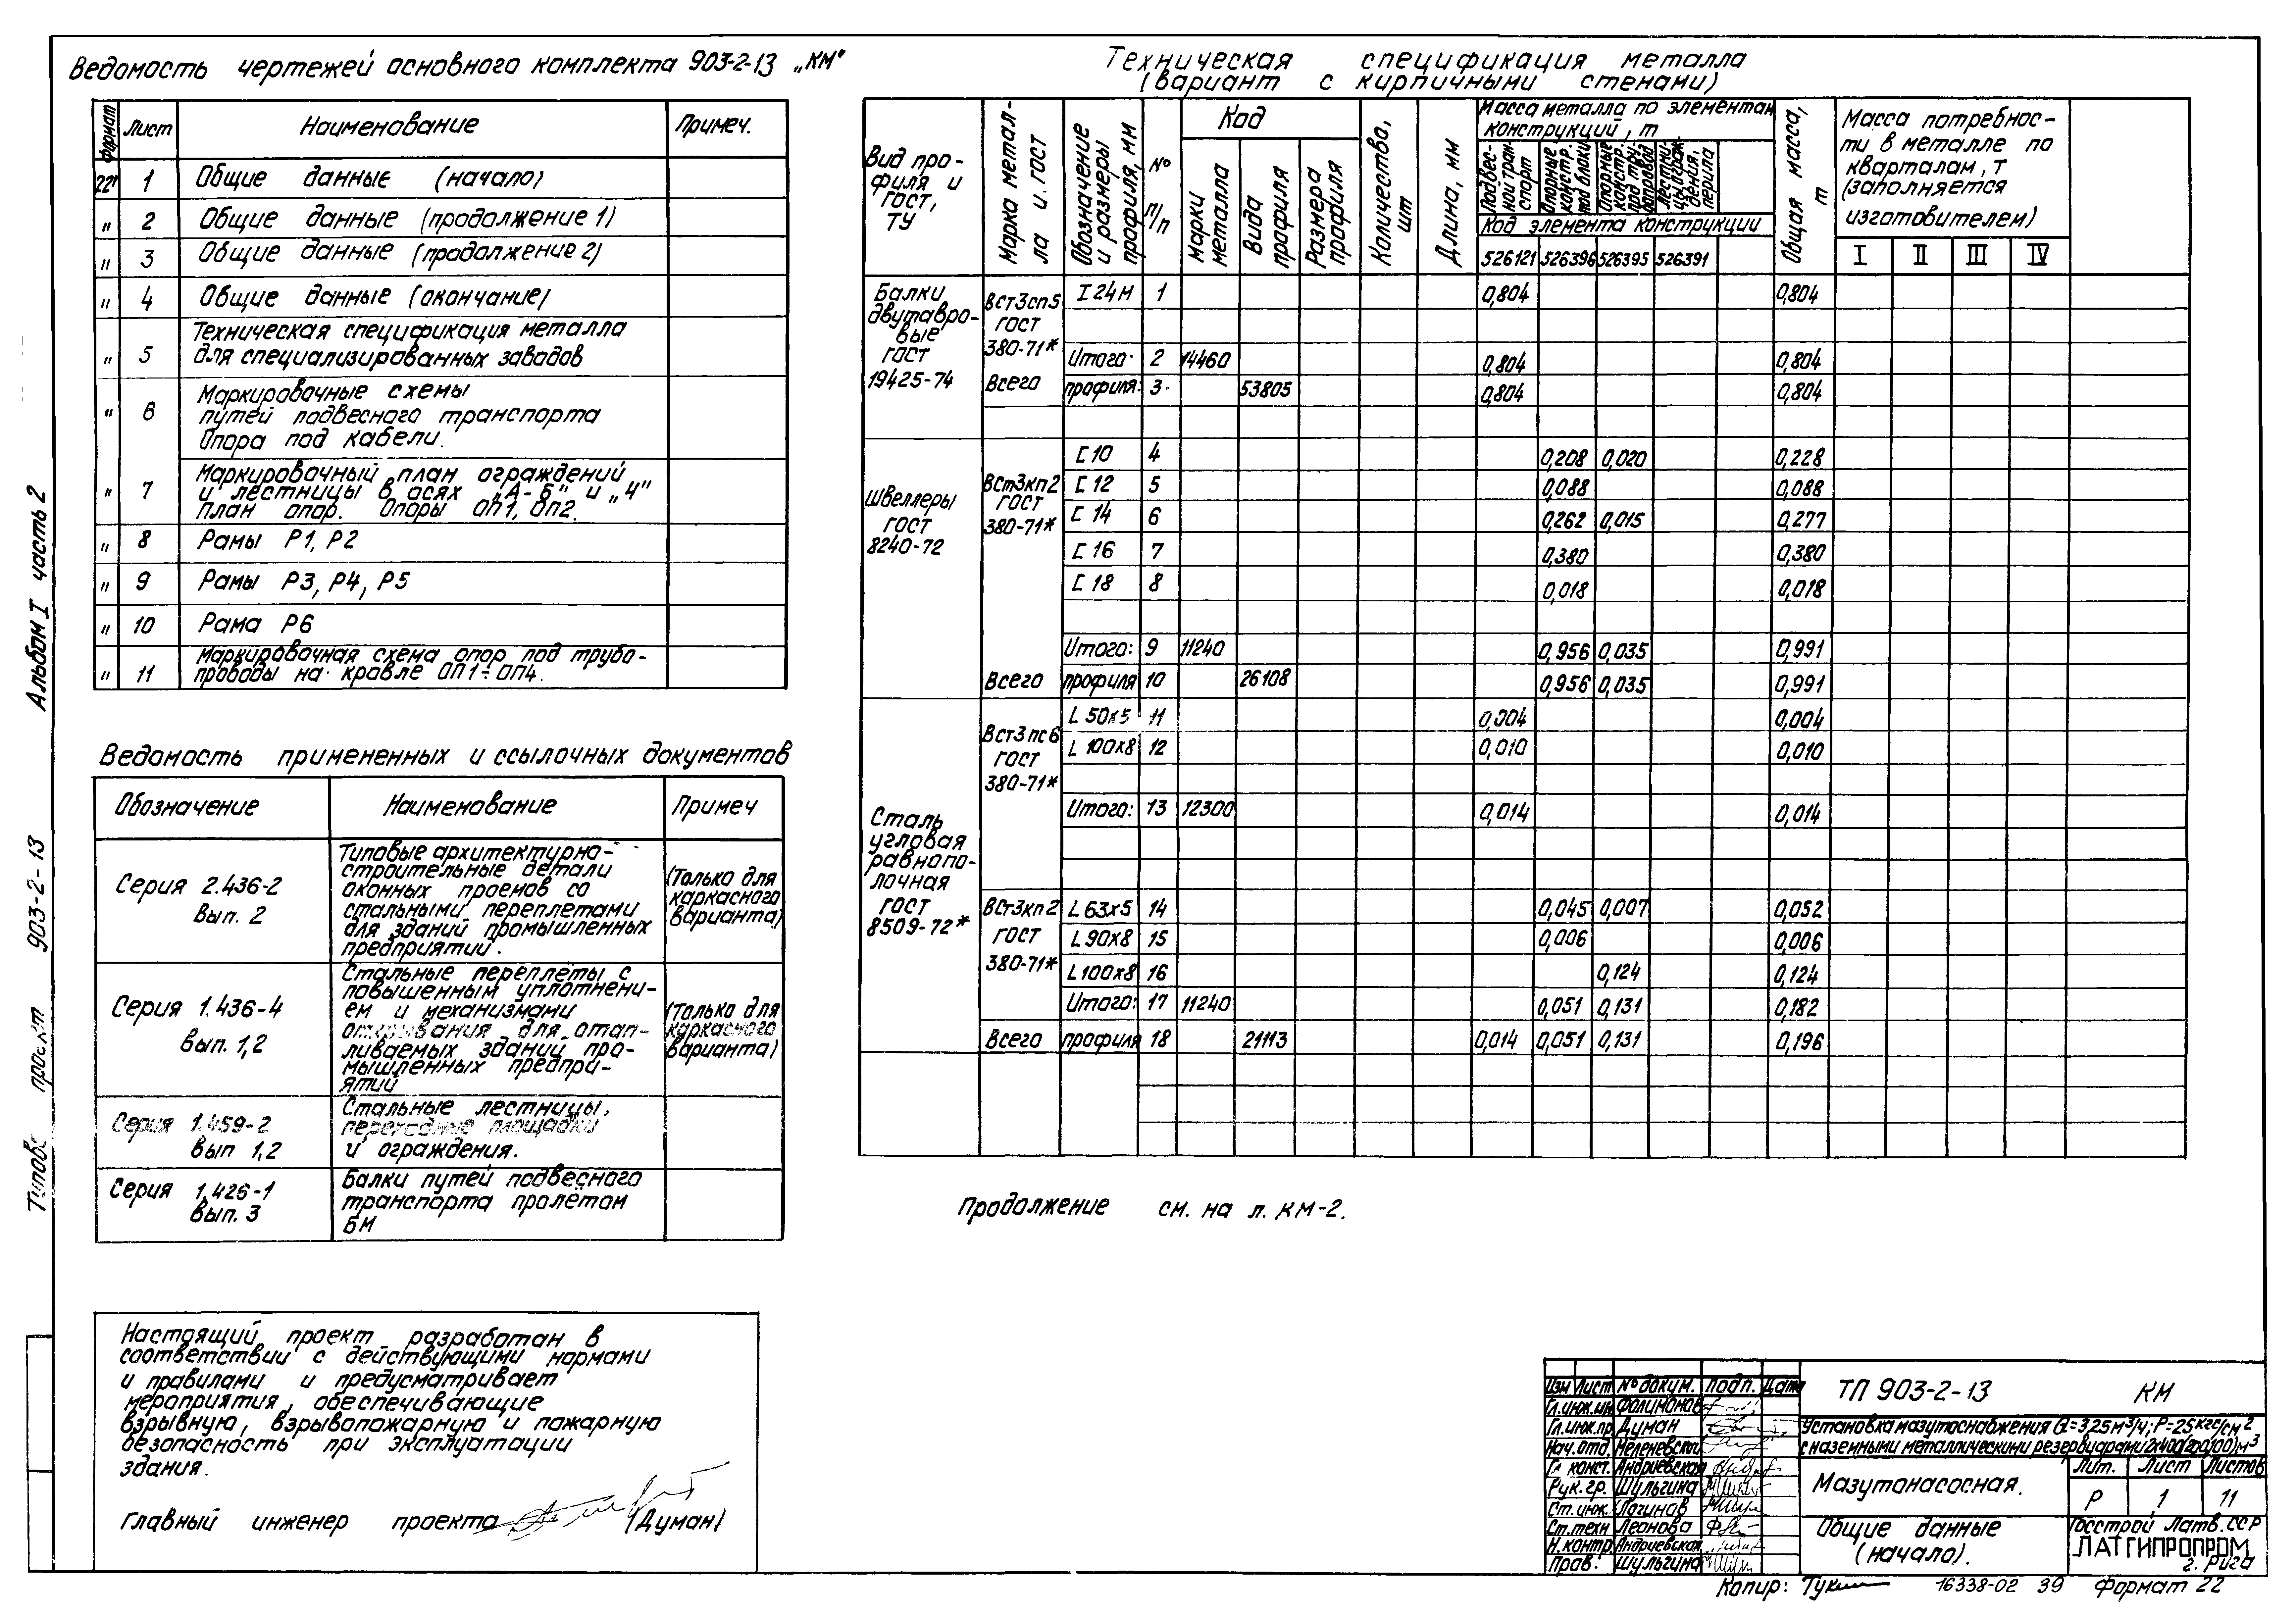 Альбом I часть 2
903-2-13
Ведомость чертежей основного комплекта 903-2-13 „КМ"
Формат Лист Наименование Примеч.
22г 1 Общие данные (начало)
" 2 Общие данные (продолжение 1)
" 3 Общие данные (продолжение 2)
" 4 Общие данные (окончание)
" 5 Техническая спецификация металла
для специализированных заводов
" 6 Маркировочные схемы
путей подвесного транспорта
Опора под кабели.
" 7 Маркировочный план ограждений
и лестницы в осях „А-Б" и „4"
План опор. Опоры ОП1, ОП2.
" 8 Рамы Р1, Р2
" 9 Рамы Р3, Р4, Р5
" 10 Рама Р6
" 11 Маркировочная схема опор под трубо-
проводы на кровле ОП1÷ОП4.
Ведомость примененных и ссылочных документов
Обозначение Наименование Примеч
Серия 2.436-2
Вып. 2
Типовые архитектурно-
строительные детали
оконных проемов со
стальными переплетами
для зданий промышленных
предприятий.
(Только для
каркасного
варианта)
Серия 1.436-4
Вып. 1,2
Стальные переплёты с
повышенным уплотнени-
ем и механизмами
открывания для отап-
ливаемых зданий про-
мышленных предпри-
ятий
(Только для
каркасного
варианта)
Серия 1.459-2
Вып 1,2
Стальные лестницы,
переходные площадки
и ограждения.
Серия 1.426-1
Вып. 3
Балки путей подвесного
транспорта пролётом
6М
Настоящий проект разработан в
соответствии с действующими нормами
и правилами и предусматривает
мероприятия, обеспечивающие
взрывную, взрывопожарную и пожарную
безопасность при эксплуатации
здания.
Главный инженер проекта (Думан)
Техническая спецификация металла
(вариант с кирпичными стенами)
Вид про-
филя и
ГОСТ,
ТУ
Марка метал-
ла и. гост
Обозначение
и размеры
профиля, мм
№
п/п
Код
Марки
металла
Вида
профиля
Размера
профиля
Количество,
шт
Длина, мм
Масса металла по элементам
конструкций, т
Подвес-
ной тран
спорт
Опорные
констр.
под блоки
Опорные
констр.
под тру-
бопровод
Лестни-
цы, ограж-
дения,
перила
Код элемента конструкции
526121 526396 526395 526391
Общая масса,
т
Масса потребнос-
ти в металле по
кварталам, т
(заполняется
изготовителем)
I II III IV
Балки
двутавро-
вые
ГОСТ
19425-74
ВСт3сп5
ГОСТ
380-71*
I 24М 1 0,804 0,804
Итого: 2 14460 0,804 0,804
Всего профиля: 3 53805 0,804 0,804
Швеллеры
ГОСТ
8240-72
ВСт3кп2
ГОСТ
380-71*
[ 10 4 0,208 0,020 0,228
[ 12 5 0,088 0,088
[ 14 6 0,262 0,015 0,277
[ 16 7 0,380 0,380
[ 18 8 0,018 0,018
Итого: 9 11240 0,956 0,035 0,991
Всего профиля 10 26108 0,956 0,035 0,991
Сталь
угловая
равнопо-
лочная
ГОСТ
8509-72*
ВСт3пс6
ГОСТ
380-71*
L 50х5 11 0,004 0,004
L 100х8 12 0,010 0,010
Итого: 13 12300 0,014 0,014
ВСт3кп2
ГОСТ
380-71*
L 63х5 14 0,045 0,007 0,052
L 90х8 15 0,006 0,006
L 100х8 16 0,124 0,124
Итого: 17 11240 0,051 0,131 0,182
Всего профиля 18 21113 0,014 0,051 0,131 0,196
Продолжение см. на л. КМ-2.
Изм Лист № докум. Подп. Дата
Гл.инж.ин Фолимонов
Гл.инж.пр. Думан
Нач.отд. Меленевский
Гл конст. Андриевская
Рук.гр. Шульгина
Ст.инж. Логинов
Ст.техн Леонова
Н.контр. Андриевская
Пров: Шульгина
ТП 903-2-13 КМ
Установка мазутоснабжения Q=3,25м³/ч; Р=25кгс/см²
с наземными металлическими резервуарами 2х400(200,100)м³
Мазутонасосная.
Лит. Лист Листов
Р 1 11
Общие данные
(начало).
Госстрой Латв.ССР
ЛАТГИПРОПРОМ
г. Рига
Копир: 16338-02 39 Формат 22